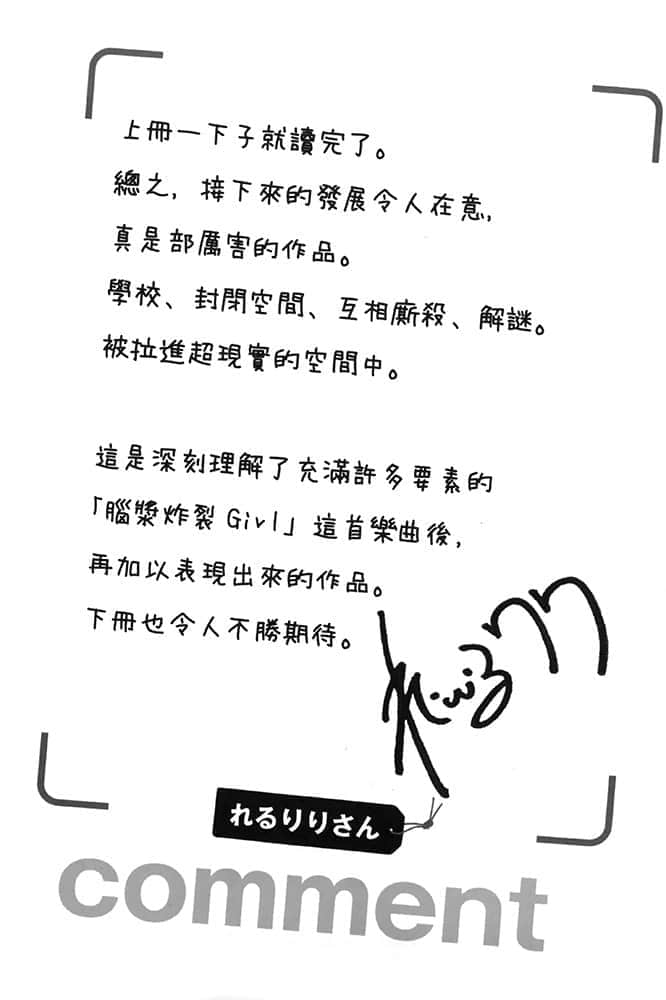 上冊一下子就讀完了。
總之,接下來的發展令人在意,
真是部厲害的作品。
學校、封閉空間、互相廝殺、解謎。
被拉進超現實的空間中。
這是深刻理解了充滿許多要素的
「腦漿炸裂 Girl」這首樂曲後,
再加以表現出來的作品。
下冊也令人不勝期待。
れるりりさん
comment